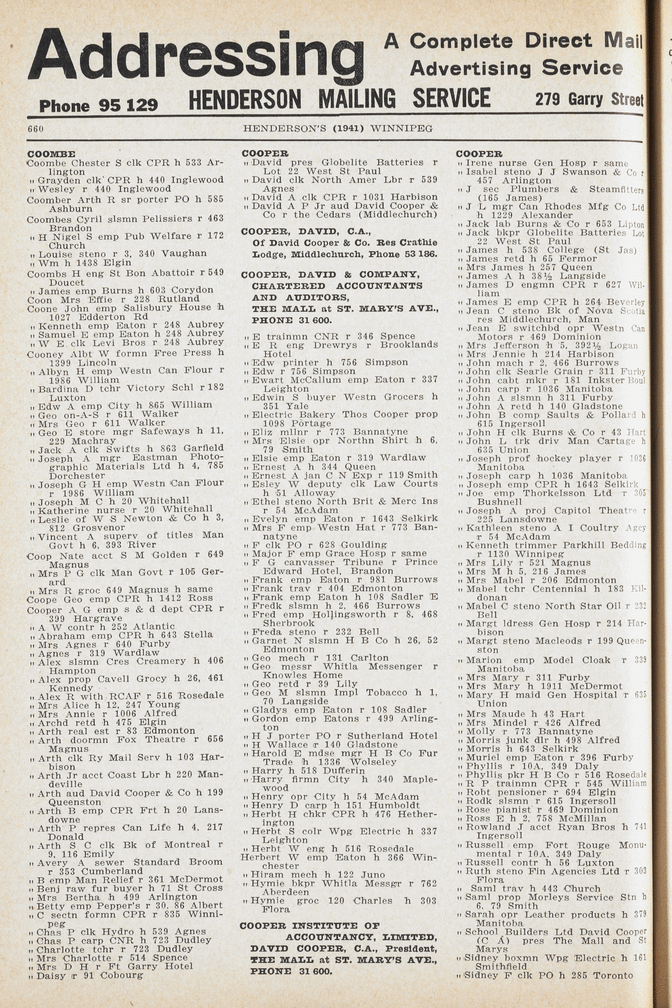 Addressing
A Complete Direct Mail
Advertising Service
Phone 95 129
HENDERSON MAILING SERVICE
279 Garry Street
660
HENDERSON'S (1941) WINNIPEG
COOMBE
Coombe Chester S clk CPR h 533 Ar-
lington
" Grayden clk CPR h 440 Inglewood
" Wesley r 440 Inglewood
Coomber Arth R sr porter PO h 585
Ashburn
Coombes Cyril slsmn Pelissiers r 463
Brandon
" H Nigel S emp Pub Welfare r 172
Church
" Louise steno r 3, 340 Vaughan
" Wm h 1438 Elgin
Coombs H eng St Bon Abattoir r 549
Doucet
" James emp Burns h 603 Corydon
Coon Mrs Effie r 228 Rutland
Coone John emp Salisbury House h
1027 Edderton Rd
" Kenneth emp Eaton r 248 Aubrey
" Samuel E emp Eaton h 248 Aubrey
" W E clk Levi Bros r 248 Aubrey
Cooney Albt W formn Free Press h
1399 Lincoln
" Albyn H emp Westn Can Flour r
1986 William
" Bardina D tchr Victory Schl r 182
Luxton
" Edw A emp City h 865 William
" Geo on-A-S r 611 Walker
" Mrs Geo r 611 Walker
" Geo E store mgr Safeways h 11,
229 Machray
" Jack A clk Swifts h 863 Garfield
" Joseph A mgr Eastman Photo-
graphic Materials Ltd h 4, 785
Dorchester
" Joseph G H emp Westn Can Flour
r 1986 William
" Joseph M C h 20 Whitehall
" Katherine nurse r 20 Whitehall
" Leslie of W S Newton & Co h 3,
812 Grosvenor
" Vincent A superv of titles Man
Govt h 6, 393 River
Coop Nate acct S M Golden r 649
Magnus
" Mrs P G clk Man Govt r 105 Ger-
ard
" Mrs R groc 649 Magnus h same
Coope Geo emp CPR h 1412 Ross
Cooper A G emp s & d dept CPR r
399 Hargrave
" A W contr h 252 Atlantic
" Abraham emp CPR h 643 Stella
" Mrs Agnes r 640 Furby
" Agnes r 319 Wardlaw
" Alex slsmn Cres Creamery h 406
Hampton
" Alex prop Cavell Grocy h 26, 461
Kennedy
" Alex R with RCAF r 516 Rosedale
" Mrs Alice h 12, 247 Young
" Mrs Annie r 1006 Alfred
" Archd retd h 475 Elgin
" Arth real est r 83 Edmonton
" Arth doormn Fox Theatre r 656
Magnus
" Arth clk Ry Mail Serv h 103 Har-
bison
" Arth Jr acct Coast Lbr h 220 Man-
deville
" Arth aud David Cooper & Co h 199
Queenston
" Arth B emp CPR Frt h 20 Lans-
downe
" Arth P repres Can Life h 4, 217
Donald
" Arth S C clk Bk of Montreal r
9, 116 Emily
" Avery A sewer Standard Broom
r 353 Cumberland
" B emp Man Relief r 361 McDermot
" Benj raw fur buyer h 71 St Cross
" Mrs Bertha h 499 Arlington
" Betty emp Pepper's r 30, 86 Albert
" C sectn formn CPR r 835 Winni-
peg
" Chas P clk Hydro h 539 Agnes
" Chas P carp CNR h 723 Dudley
" Charlotte tchr r 723 Dudley
" Mrs Charlotte r 514 Spence
" Mrs D H r Ft Garry Hotel
" Daisy r 91 Cobourg
COOPER
" David pres Globelite Batteries r
Lot 22 West St Paul
" David clk North Amer Lbr r 539
Agnes
" David A clk CPR r 1031 Harbison
" David A P Jr aud David Cooper &
Co r the Cedars (Middlechurch)
COOPER, DAVID, C.A.,
Of David Cooper & Co. Res Crathie
Lodge, Middlechurch, Phone 53 186.
COOPER, DAVID & COMPANY,
CHARTERED ACCOUNTANTS
AND AUDITORS,
THE MALL at ST. MARY'S AVE.,
PHONE 31 600.
" E trainmn CNR r 346 Spence
" E R eng Drewrys r Brooklands
Hotel
" Edw printer h 756 Simpson
" Edw r 756 Simpson
" Ewart McCallum emp Eaton r 337
Leighton
" Edwin S buyer Westn Grocers h
351 Yale
" Electric Bakery Thos Cooper prop
1098 Portage
" Eliz millnr r 773 Bannatyne
" Mrs Elsie opr Northn Shirt h 6,
79 Smith
" Elsie emp Eaton r 319 Wardlaw
" Ernest A h 344 Queen
" Ernest A jan C N Exp r 119 Smith
" Esley W deputy clk Law Courts
h 51 Alloway
" Ethel steno North Brit & Merc Ins
r 54 McAdam
" Evelyn emp Eaton r 1643 Selkirk
" Mrs F emp Westn Hat r 773 Ban-
natyne
" F clk PO r 628 Goulding
" Major F emp Grace Hosp r same
" F G canvasser Tribune r Prince
Edward Hotel, Brandon
" Frank emp Eaton r 981 Burrows
" Frank trav r 404 Edmonton
" Frank emp Eaton h 108 Sadler E
" Fredk slsmn h 2, 466 Burrows
" Fred emp Hollingsworth r 8, 468
Sherbrook
" Freda steno r 232 Bell
" Garnet N slsmn H B Co h 26, 52
Edmonton
" Geo mech r 131 Carlton
" Geo messr Whitla Messenger r
Knowles Home
" Geo retd r 39 Lily
" Geo M slsmn Impl Tobacco h 1,
70 Langside
" Gladys emp Eaton r 108 Sadler
" Gordon emp Eatons r 499 Arling-
ton
" H J porter PO r Sutherland Hotel
" H Wallace r 140 Gladstone
" Harold E mdse mgr H B Co Fur
Trade h 1336 Wolseley
" Harry h 518 Dufferin
" Harry firmn City h 340 Maple-
wood
" Henry opr City h 54 McAdam
" Henry D carp h 151 Humboldt
" Herbt H chkr CPR h 476 Hether-
ington
" Herbt S colr Wpg Electric h 337
Leighton
" Herbt W eng h 516 Rosedale
Herbert W emp Eaton h 366 Win-
chester
" Hiram mech h 122 Juno
" Hymie bkpr Whitla Messgr r 762
Aberdeen
" Hymie groc 120 Charles h 303
Flora
COOPER INSTITUTE OF
ACCOUNTANCY, LIMITED,
DAVID COOPER, C.A., President,
THE MALL at ST. MARY'S AVE.,
PHONE 31 600.
COOPER
" Irene nurse Gen Hosp r same
" Isabel steno J J Swanson & Co r
457 Arlington
" J sec Plumbers & Steamfitters
(165 James)
" J L mgr Can Rhodes Mfg Co Ltd
h 1229 Alexander
" Jack lab Burns & Co r 653 Lipton
" Jack bkpr Globelite Batteries Lot
22 West St Paul
" James h 538 College (St Jas)
" James retd h 65 Fermor
" Mrs James h 257 Queen
" James A h 38½ Langside
" James D engmn CPR r 627 Wil-
liam
" James E emp CPR h 264 Beverley
" Jean C steno Bk of Nova Scotia
res Middlechurch, Man
" Jean E switchbd opr Westn Can
Motors r 469 Dominion
" Mrs Jefferson h 5, 392½ Logan
" Mrs Jennie h 214 Harbison
" John mach r 2, 466 Burrows
" John clk Searle Grain r 311 Furby
" John cabt mkr r 181 Inkster Boul
" John carp r 1036 Manitoba
" John A slsmn h 311 Furby
" John A retd h 140 Gladstone
" John B comp Saults & Pollard h
615 Ingersoll
" John H clk Burns & Co r 43 Hart
" John L trk driv Man Cartage h
635 Union
" Joseph prof hockey player r 1036
Manitoba
" Joseph carp h 1036 Manitoba
" Joseph emp CPR h 1643 Selkirk
" Joe emp Thorkelsson Ltd r 305
Bushnell
" Joseph A proj Capitol Theatre r
225 Lansdowne
" Kathleen steno A I Coultry Agcy
r 54 McAdam
" Kenneth trimmer Parkhill Bedding
r 1130 Winnipeg
" Mrs Lily r 521 Magnus
" Mrs M h 5, 216 James
" Mrs Mabel r 206 Edmonton
" Mabel tchr Centennial h 183 Kil-
donan
" Mabel C steno North Star Oil r 232
Bell
" Margt ldress Gen Hosp r 214 Har-
bison
" Margt steno Macleods r 199 Queen-
ston
" Marion emp Model Cloak r 339
Manitoba
" Mrs Mary r 311 Furby
" Mrs Mary h 1911 McDermot
" Mary H maid Gen Hospital r 635
Union
" Mrs Maude h 43 Hart
" Mrs Mindel r 426 Alfred
" Molly r 773 Bannatyne
" Morris junk dlr h 498 Alfred
" Morris h 643 Selkirk
" Muriel emp Eaton r 396 Furby
" Phyllis r 10A, 349 Daly
" Phyllis pkr H B Co r 516 Rosedale
" R P trainmn CPR r 545 William
" Robt pensioner r 694 Elgin
" Rodk slsmn r 615 Ingersoll
" Rose pianist r 469 Dominion
" Ross E h 2, 758 McMillan
" Rowland J acct Ryan Bros h 741
Ingersoll
" Russell emp Fort Rouge Monu-
mental r 10A, 349 Daly
" Russell contr h 56 Luxton
" Ruth steno Fin Agencies Ltd r 303
Flora
" Saml trav h 443 Church
" Saml prop Morleys Service Stn h
6, 79 Smith
" Sarah opr Leather products h 379
Manitoba
" School Builders Ltd David Cooper
(C A) pres The Mall and St
Marys
" Sidney boxmn Wpg Electric h 161
Smithfield
" Sidney F clk PO h 285 Toronto